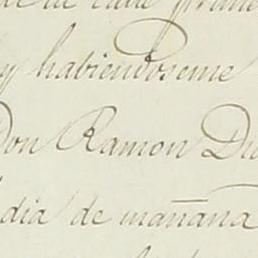 de la
y habiendoseme
Don Ramon
dia de mañana